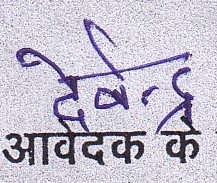 देवेन्द्र
आवेदक के